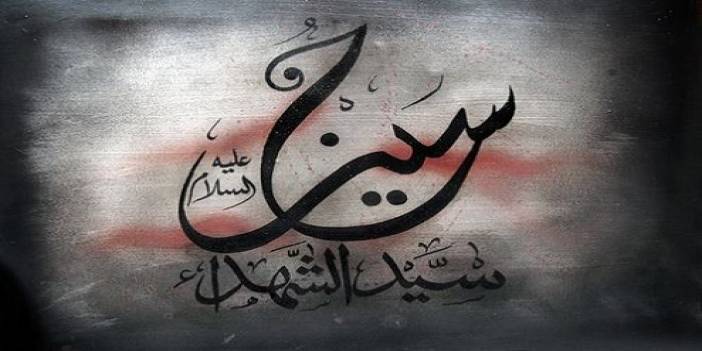 حسین
علیه
السلام
سَیِّدُ الشُّهَداء